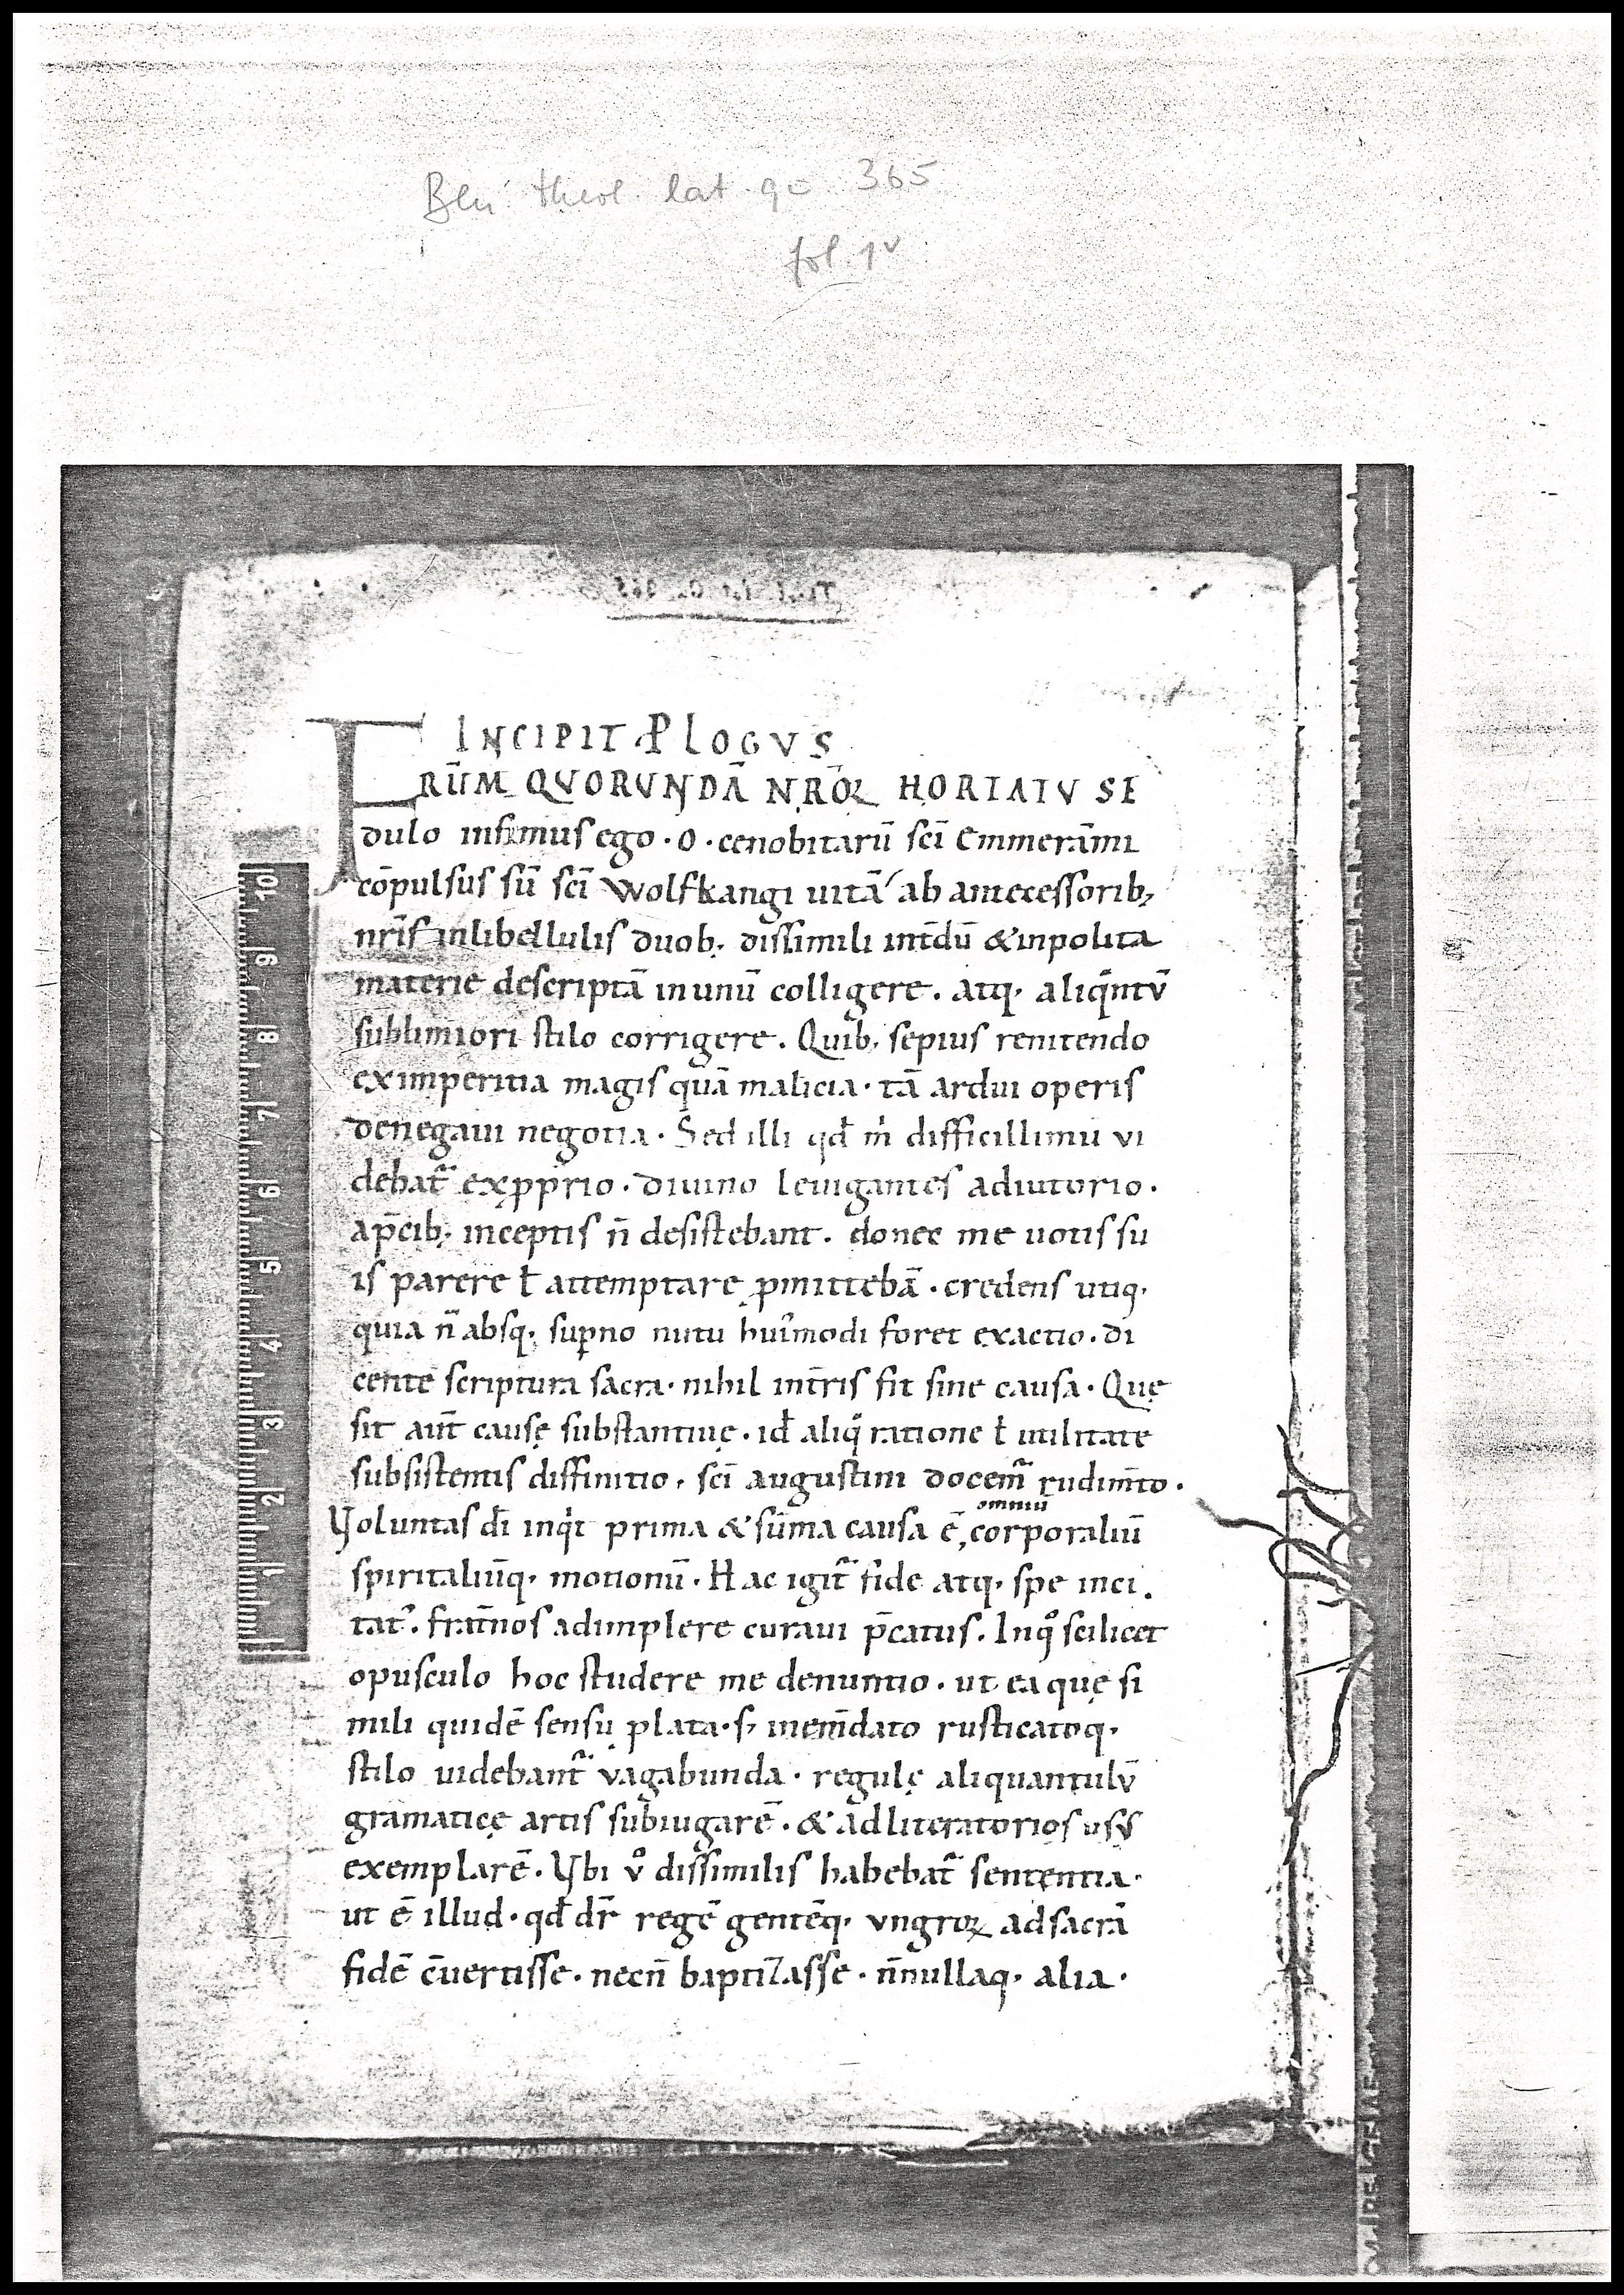 Bln theol. lat. qu 365
fol. 1v
INCIPIT PLOGVS
FRŪM QVORUNDĀ NRŌꝜ HORTATV SE
dulo infimus ego · o · cenobitarū sc̄i Emmerāmi
cōpulsus sū sc̄i Wolfkangi uitā ab antecessorib;
nr̄is inlibellulis duob; dissimili int̄dū & inpolita
materie descriptā inunū colligere. atq; aliq̄ntv̄
sublimiori stilo corrigere. Quib; sepius renitendo
ex imperitia magis quā malicia · tā ardui operis
denegaui negotia · Sed illi qd̄ m̄ difficillimū vi
debat᷑ exꝓprio · diuino leuigantes adiutorio ·
ap̄cib; inceptis n̄ desistebant. donec me uotis su
is parere ł attemptare ꝑmittebā · credens utiq;
quia n̄ absq; suꝑno nutu hui᷒modi foret exactio · di
cente scriptura sacra · nihil int̄ris fit sine causa · Quę
sit aūt causę substantiuę · id̄ aliq̄ ratione ł utilitate
subsistentis diffinitio, sc̄i augustini docem᷑ rudim̄to ·
omniū
Voluntas dī inqͥt prima & sūma causa ē, corporaliū
spiritaliūq; motionū · Hac igit᷑ fide atq; spe inci
tat᷒. frat̄nos adimplere curaui p̄catus. Inqͦ scilicet
opusculo hoc studere me denuntio · ut ea quę si
mili quidē sensu ꝓlata · s; inem̄dato rusticatoq;
stilo uidebant᷑ vagabunda · regulę aliquantulv̄
grāmaticę artis subiugarē · & ad literatorios usv̄
exemplarē. Vbi vͦ dissimilis habebat᷑ sententia ·
ut ē illud · qd̄ dr̄ regē gentēq; vngroꝝ ad sacrā
fidē c̄uertisse · necn̄ baptizasse · n̄nullaq; alia ·
10
9
8
7
6
5
4
3
2
1